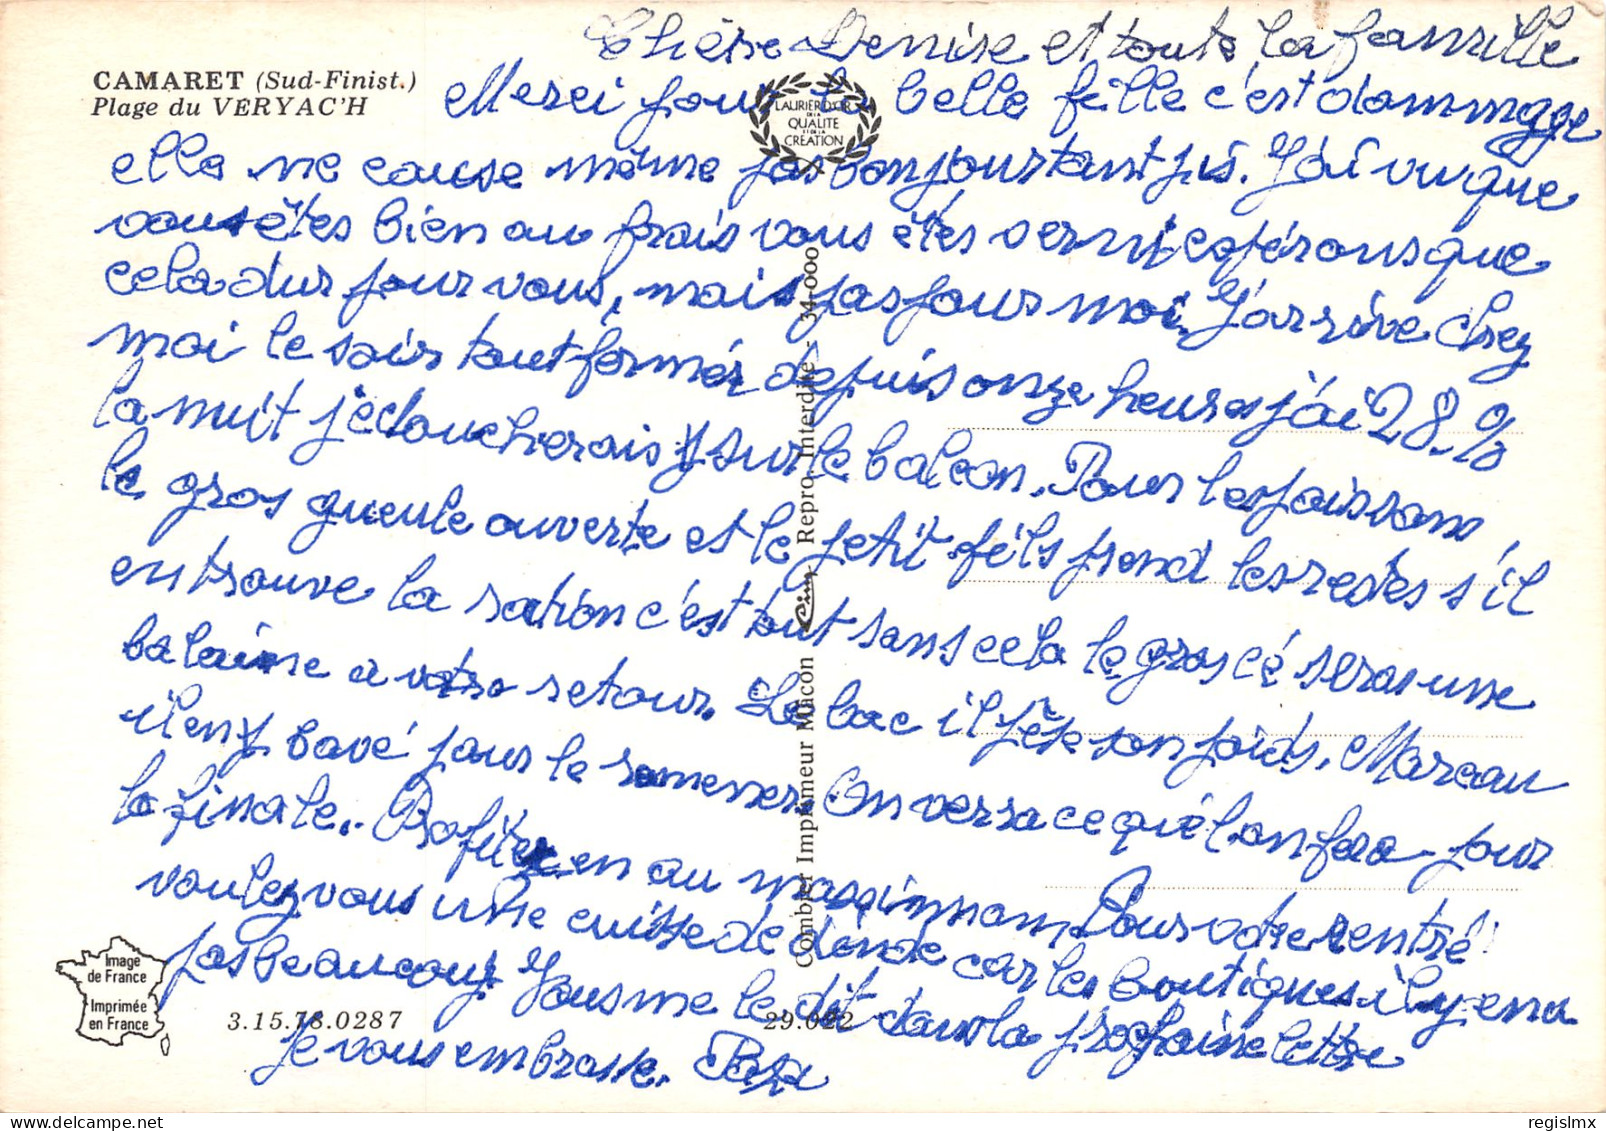 Chère Denise et toute la famille
CAMARET (Sud-Finist.)
Plage du VERYAC'H
LAURIER D'OR
DE LA
QUALITE
ET DE LA
CREATION
Merci pour la belle fille c'est dommage
elle ne cause même pas bonjour tant pis. J'ai vu que
vous êtes bien au frais vous êtes verni espérons que
cela dur pour vous, mais pas pour moi. J'arrive chez
moi le soir tout fermér depuis onze heures j'ai 28.%
la nuit je cloucherais sur le balcon. Pour les poissons
le gros gueule ouverte et le petit fils prend les restes s'il
en trouve la ration c'est tout sans cela le gros cé seras une
balaine a votre retour. Le bac il pèse son poids. Marceau
il en y bavé pour le ramener. On verra ce qu'él on fera pour
la finale.. Profitez en au maximmom Pour votre rentré
voulez vous une cuisse de dinde car les boutiques il y en a
pas beaucoup Vous me le dit dans la prochaine lettre
je vous embrasse. Papa
Combier Imprimeur Mâcon Cim Repro. Interdite - 34-000
Image
de France
Imprimée
en France
3.15.78.0287
29.022
regislmx